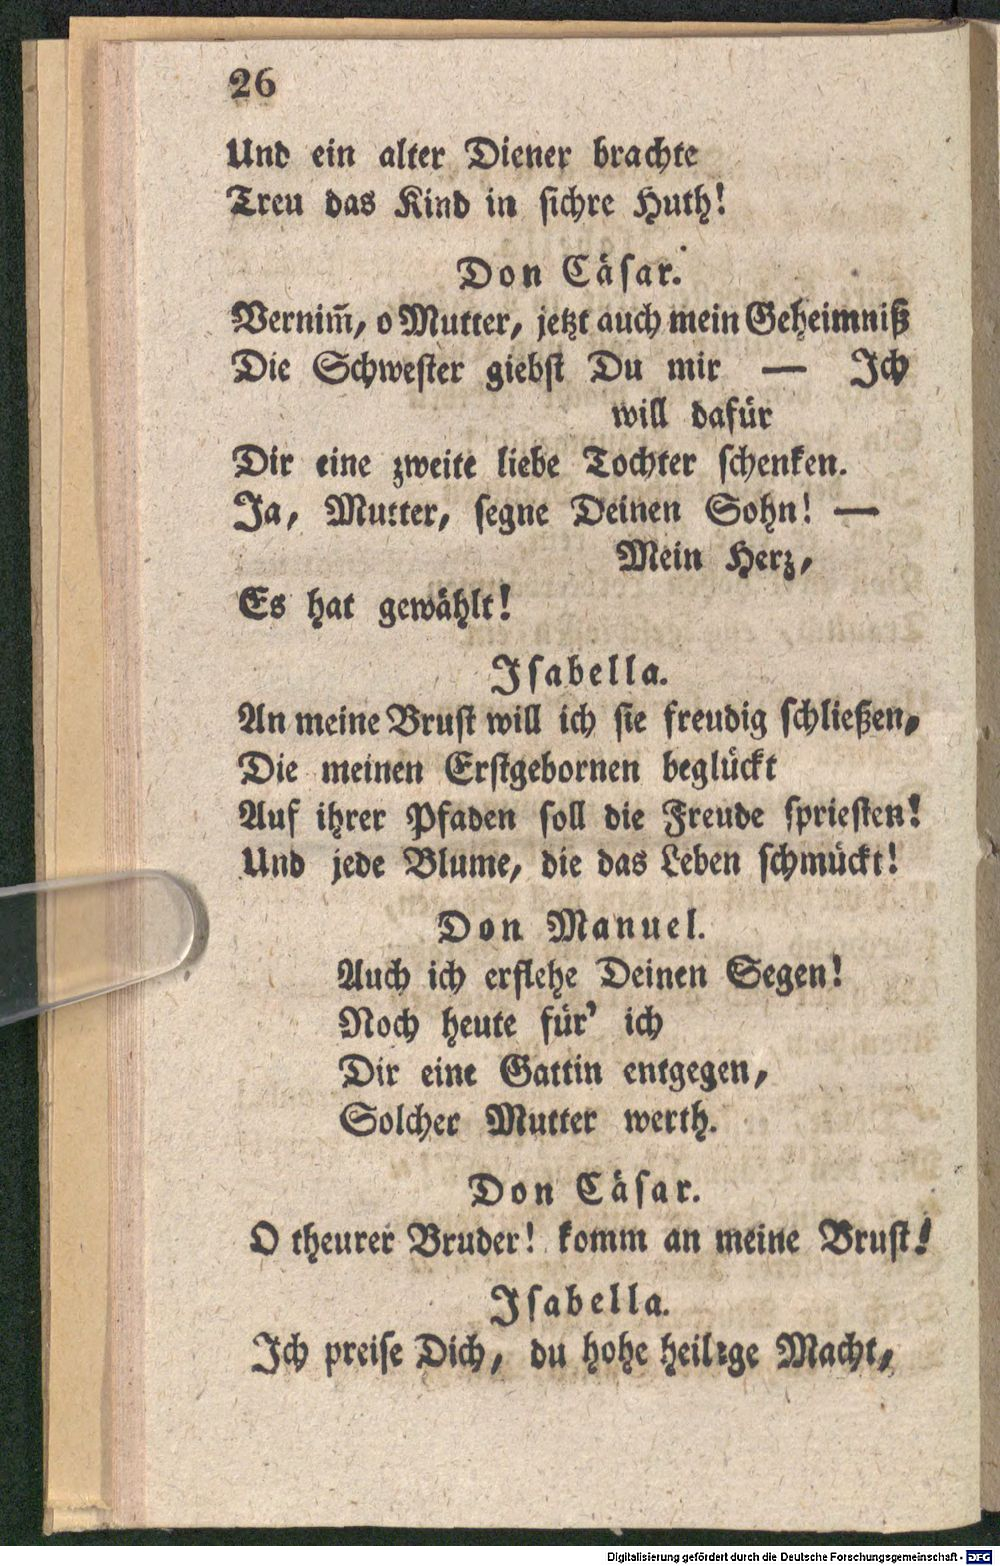 26
Und ein alter Diener brachte
Treu das Kind in sichre Huth!
Don Cäsar.
Vernim̃, o Mutter, jetzt auch mein Geheimniß
Die Schwester giebst Du mir — Ich
will dafür
Dir eine zweite liebe Tochter schenken.
Ja, Mutter, segne Deinen Sohn! —
Mein Herz,
Es hat gewählt!
Isabella.
An meine Brust will ich sie freudig schließen,
Die meinen Erstgebornen beglückt
Auf ihrer Pfaden soll die Freude spriesten!
Und jede Blume, die das Leben schmückt!
Don Manuel.
Auch ich erflehe Deinen Segen!
Noch heute für' ich
Dir eine Gattin entgegen,
Solcher Mutter werth.
Don Cäsar.
O theurer Bruder! komm an meine Brust!
Isabella.
Ich preise Dich, du hohe heilige Macht,
Digitalisierung gefördert durch die Deutsche Forschungsgemeinschaft - DFG